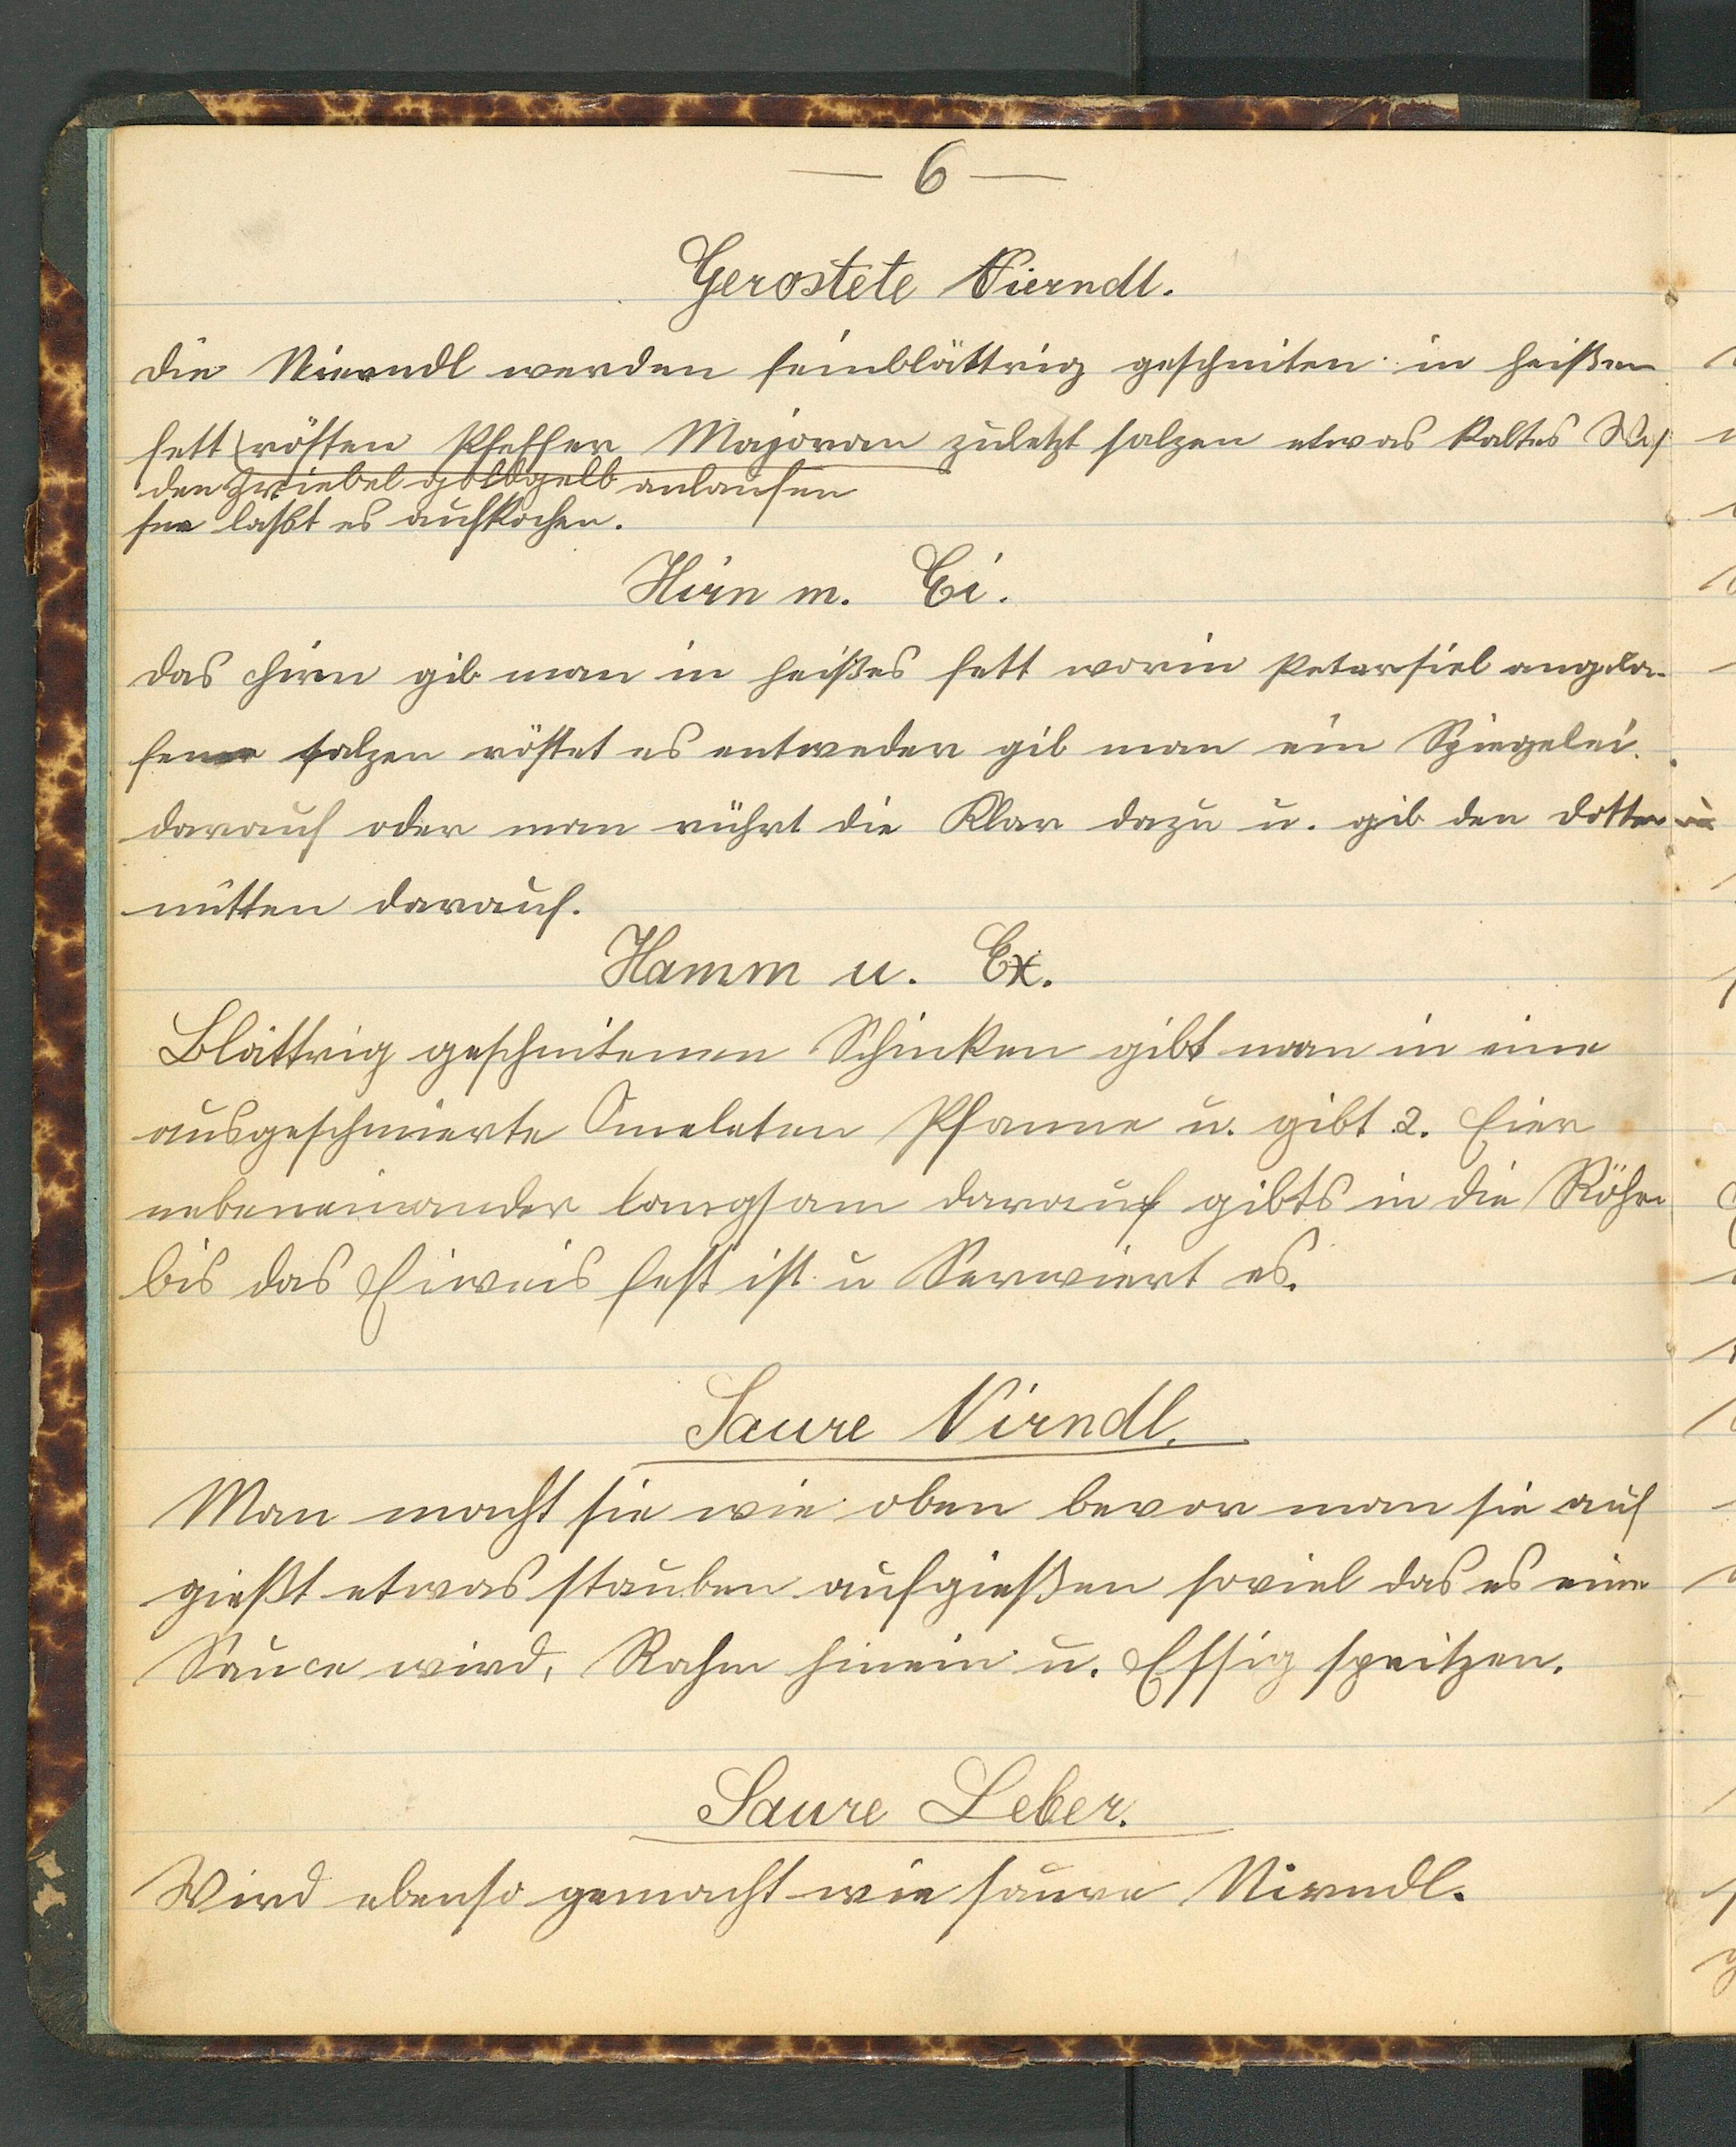 — 6 —
Gerostete Nierndl.
die Nierndl werden feinblättrig geschniten in heißen
fett rösten Pfeffer Majoran zuletzt salzen etwas kaltes Was
den Zwiebel goldgelb anlaufen
ser laßt es aufkochen.
Hirn m. Ei.
das Hirn gib man in heißes fett worin Petersiel angela-
fen salzen röstet es entweder gib man ein Spiegelei
darauf oder man rührt die Klar dazu u. gib den dotter in
mitten darauf.
Hamm u. Ex.
Blättrig geschnitenen Schinken gibt man in eine
ausgeschmierte Omeleten Pfanne u. gibt 2. Eier
nebeneinander langsam darauf gibts in die Röhre
bis das Eiweis fest ist u Serwiert es.
Saure Nirndl.
Man macht sie wie oben bevor man sie auf
gießt etwas stauben aufgießen soviel das es eine
Sauce wird, Rahm hinein u. Essig spritzen.
Saure Leber.
Wird ebenso gemacht wie saure Nirndl.